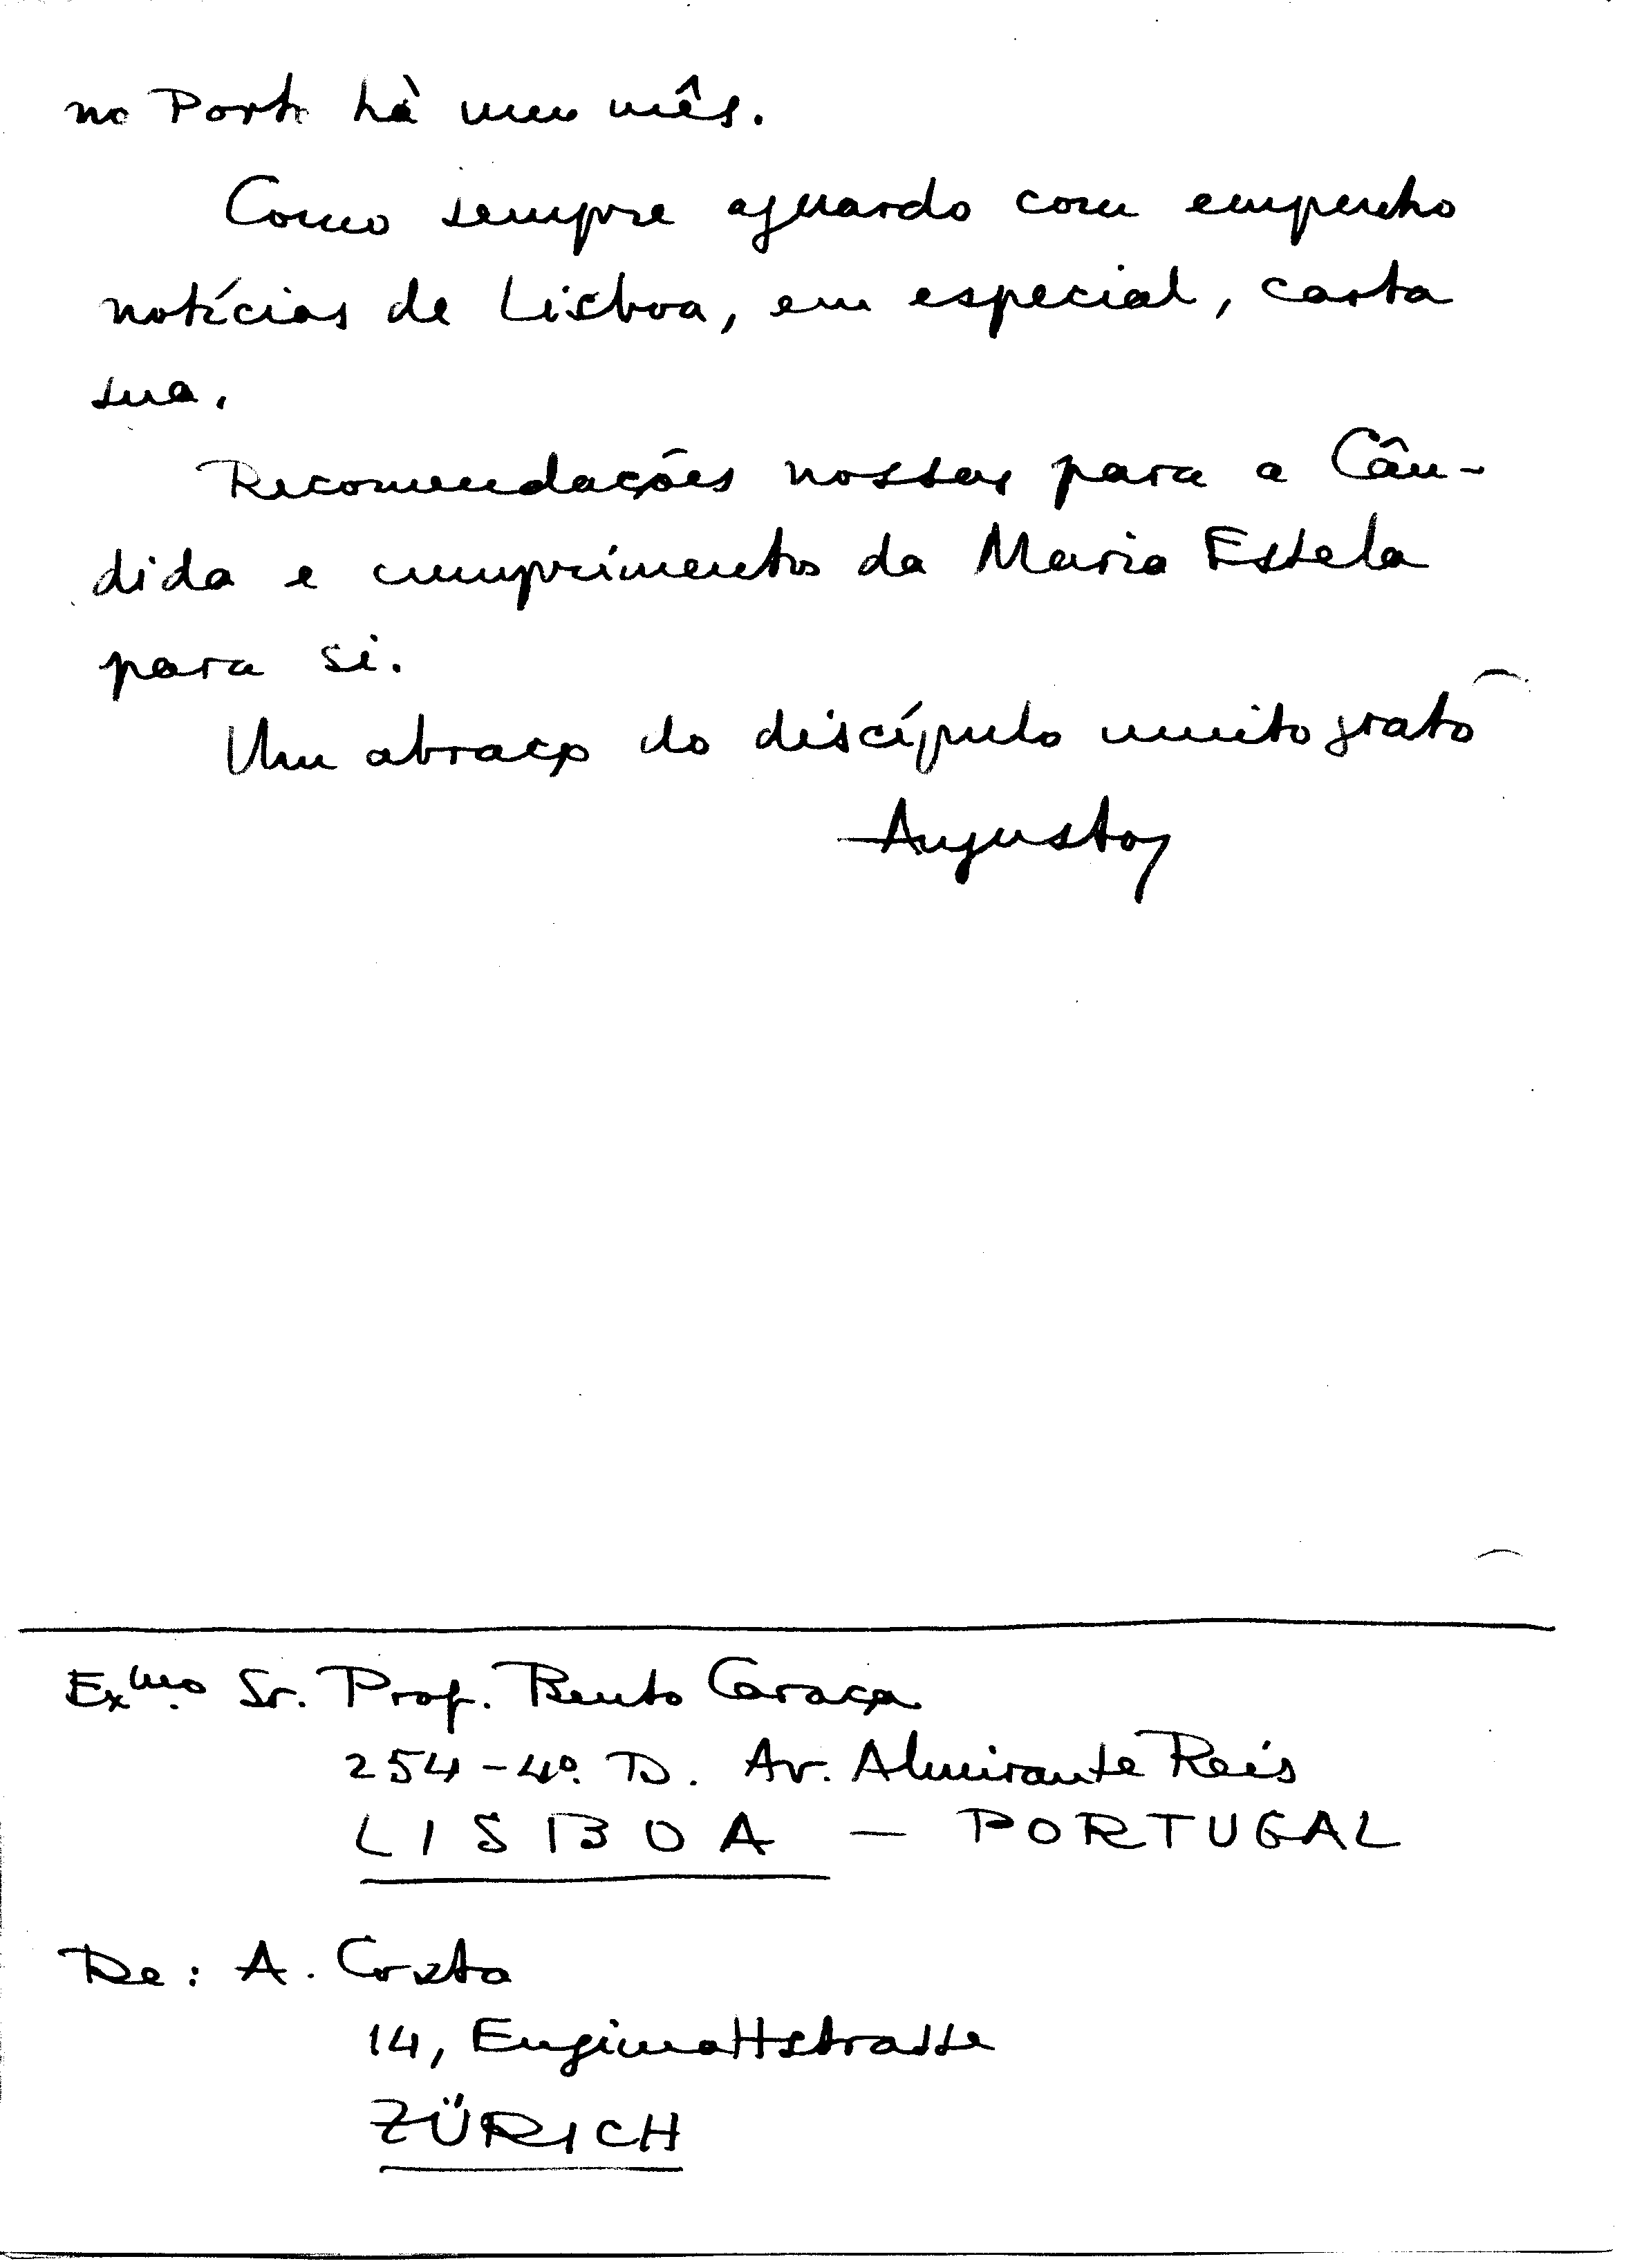 no Porto hà um mês.
Como sempre aguardo com empenho
notícias de Lisboa, em especial, carta
sua.
Recomendações nossas para a Cân-
dida e cumprimentos da Maria Estela
para si.
Um abraço do discípulo muito grato
Augusto
Exmo. Sr. Prof. Bento Caraça
254-4º. D. Av. Almirante Reis
LISBOA — PORTUGAL
De: A. Costa
14, Engimattstrasse
ZÜRICH